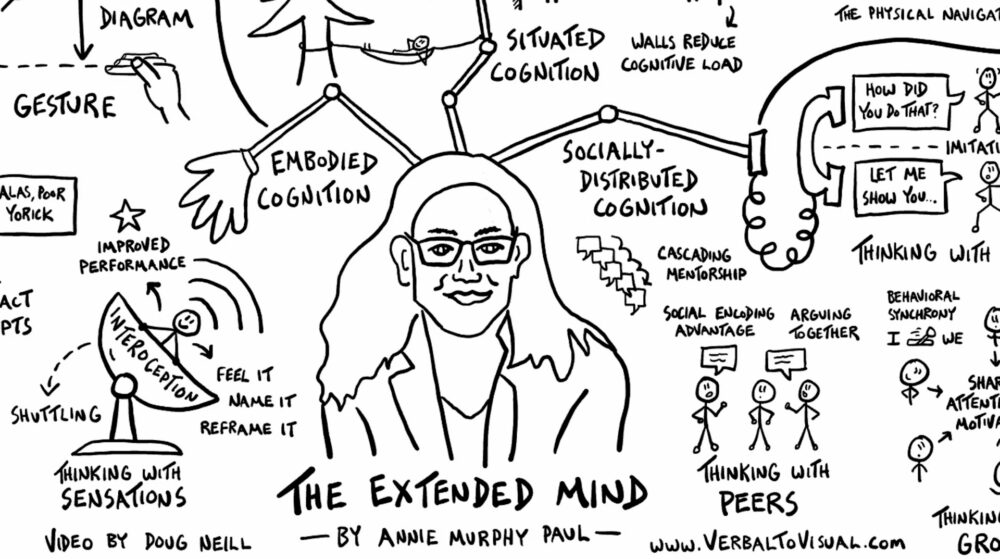 DIAGRAM
GESTURE
SITUATED
COGNITION
WALLS REDUCE
COGNITIVE LOAD
THE PHYSICAL
EMBODIED
COGNITION
SOCIALLY-
DISTRIBUTED
COGNITION
HOW DID
YOU DO THAT?
LET ME
SHOW YOU...
THINKING WITH
ALAS, POOR
YORICK
IMPROVED
PERFORMANCE
INTEROCEPTION
SHUTTLING
FEEL IT
NAME IT
REFRAME IT
THINKING WITH
SENSATIONS
CASCADING
MENTORSHIP
SOCIAL ENCODING
ADVANTAGE
ARGUING
TOGETHER
THINKING WITH
PEERS
BEHAVIORAL
SYNCHRONY
I WE
THE EXTENDED MIND
— BY ANNIE MURPHY PAUL —
VIDEO BY DOUG NEILL
www.VERBALTOVISUAL.com